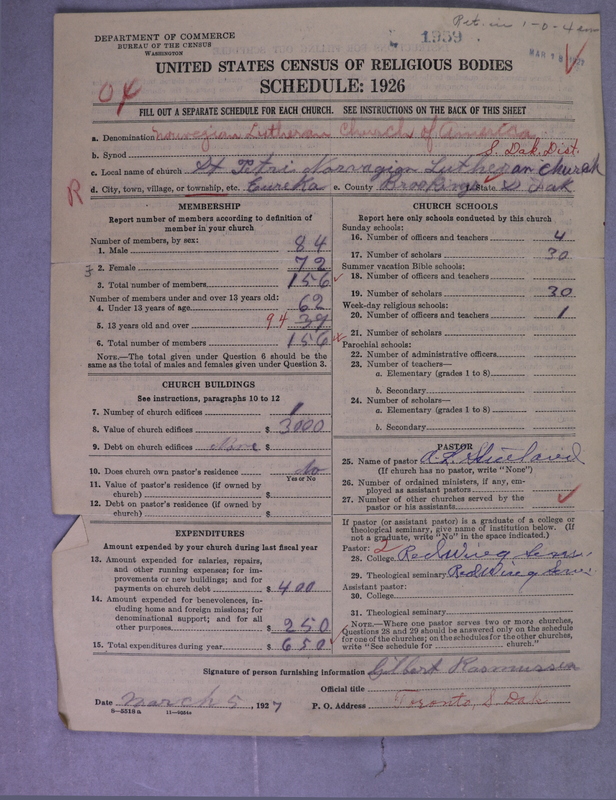 Ret. in 1-0-4
1959
MAR 18 1927
DEPARTMENT OF COMMERCE
BUREAU OF THE CENSUS
WASHINGTON
UNITED STATES CENSUS OF RELIGIOUS BODIES
SCHEDULE: 1926
OK
FILL OUT A SEPARATE SCHEDULE FOR EACH CHURCH. SEE INSTRUCTIONS ON THE BACK OF THIS SHEET
a. Denomination Norwegian Lutheran Church of America
b. Synod S. Dak. Dist.
c. Local name of church St Petri Norvagian Lutheran Church
R d. City, town, village, or township, etc. Eureka e. County Brookings State S Dak
MEMBERSHIP
Report number of members according to definition of
member in your church
Number of members, by sex:
1. Male 84
2. Female 72
3. Total number of members 156
Number of members under and over 13 years old:
4. Under 13 years of age 62
5. 13 years old and over 94 39
6. Total number of members 156
NOTE.—The total given under Question 6 should be the
same as the total of males and females given under Question 3.
CHURCH BUILDINGS
See instructions, paragraphs 10 to 12
7. Number of church edifices 1
8. Value of church edifices $ 3000
9. Debt on church edifices None $
10. Does church own pastor's residence No
Yes or No
11. Value of pastor's residence (if owned by
church) $
12. Debt on pastor's residence (if owned by
church) $
EXPENDITURES
Amount expended by your church during last fiscal year
13. Amount expended for salaries, repairs,
and other running expense; for im-
provements or new buildings; and for
payments on church debt $ 400
14. Amount expended for benevolences, in-
cluding home and foreign missions; for
denominational support; and for all
other purposes $ 250
15. Total expenditures during year $ 650
CHURCH SCHOOLS
Report here only schools conducted by this church
Sunday schools:
16. Number of officers and teachers 4
17. Number of scholars 30
Summer vacation Bible schools:
18. Number of officers and teachers
19. Number of scholars 30
Week-day religious schools:
20. Number of officers and teachers 1
21. Number of scholars
Parochial schools:
22. Number of administrative officers
23. Number of teachers—
a. Elementary (grades 1 to 8)
b. Secondary
24. Number of scholars—
a. Elementary (grades 1 to 8)
b. Secondary
PASTOR
25. Name of pastor
(If church has no pastor, write "None")
26. Number of ordained ministers, if any, em-
ployed as assistant pastors
27. Number of other churches served by the
pastor or his assistants
If pastor (or assistant pastor) is a graduate of a college or
theological seminary, give name of institution below. (If
not a graduate, write "No" in the space indicated.)
Pastor: 2
28. College Red Wing Sem.
29. Theological seminary Red Wing Sem.
Assistant pastor:
30. College
31. Theological seminary
NOTE.—Where one pastor serves two or more churches,
Questions 28 and 29 should be answered only on the schedule
for one of the churches; on the schedules for the other churches,
write "See schedule for church."
Signature of person furnishing information Gilbert Rasmussen
Official title
Date March 5, 1927 P. O. Address Toronto, S. Dak.
8—5518a 11—9264a